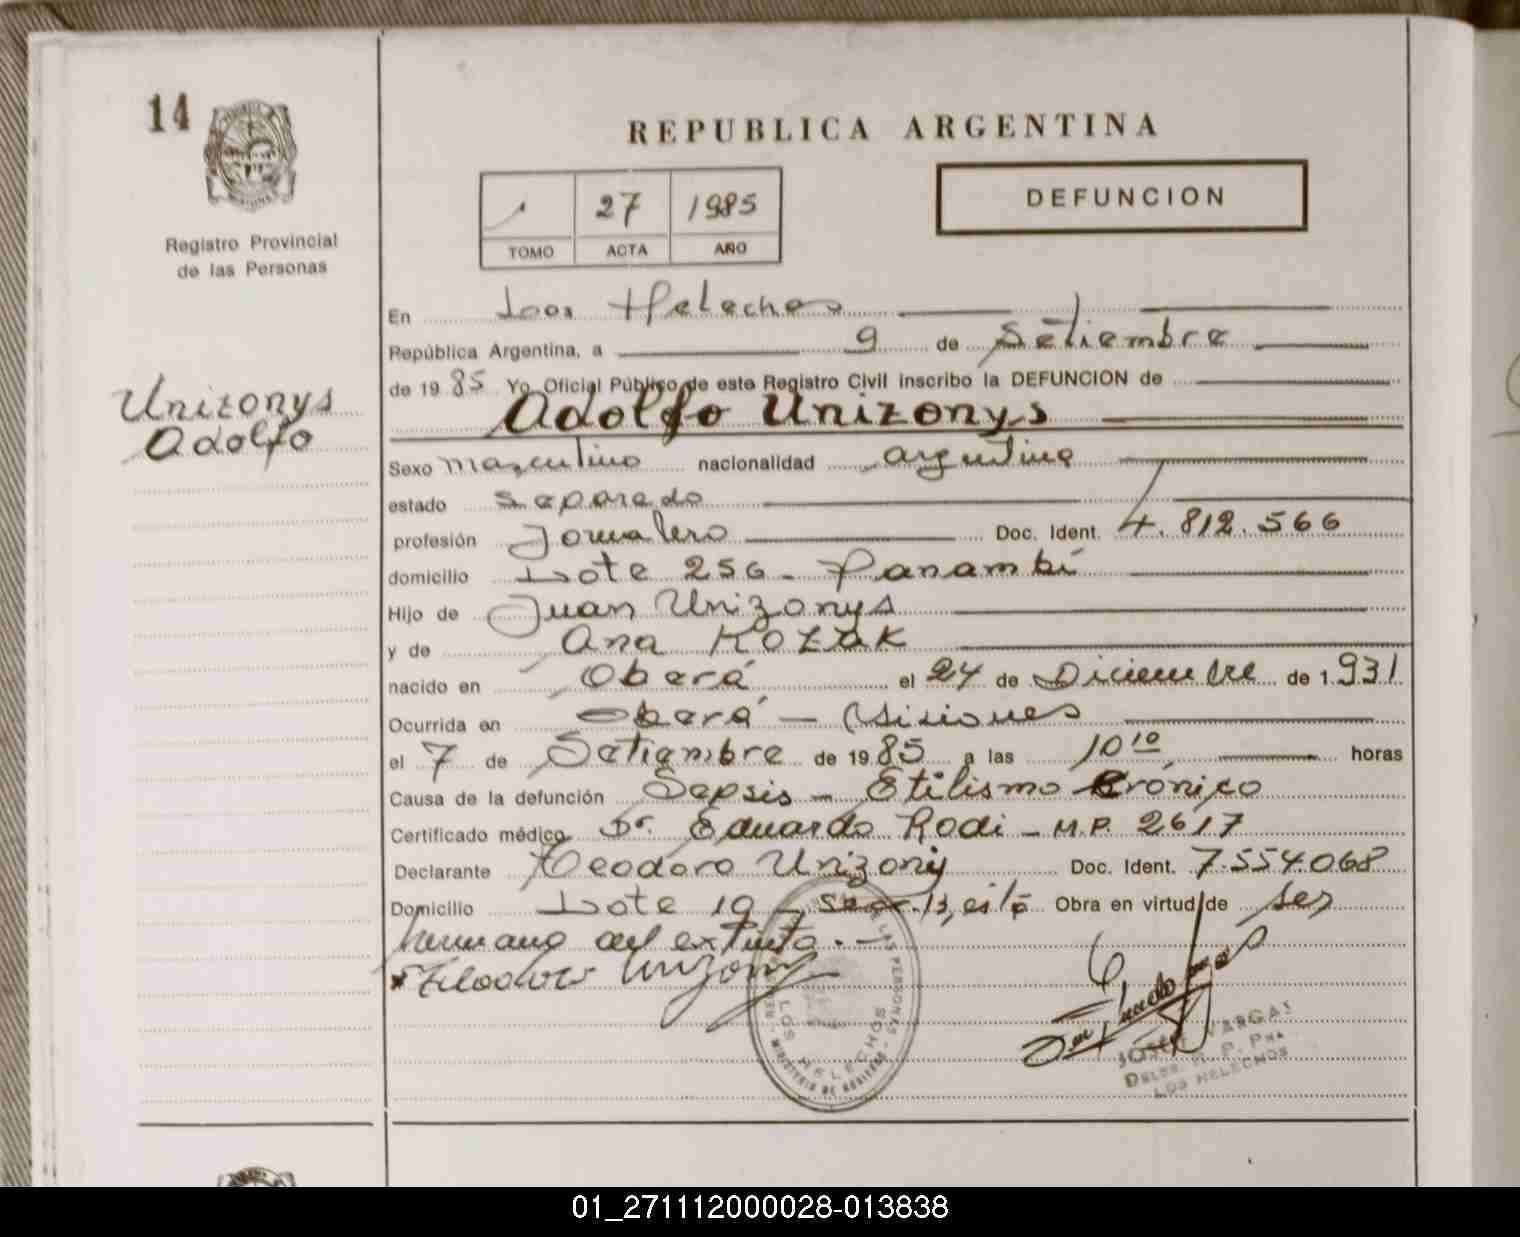 14
REPUBLICA ARGENTINA
27 1985
TOMO ACTA AÑO
DEFUNCION
Registro Provincial
de las Personas
Unizonys
Adolfo
En Los Helechos
República Argentina, a 9 de Setiembre
de 1985 Yo, Oficial Público de este Registro Civil inscribo la DEFUNCION de
Adolfo Unizonys
Sexo masculino nacionalidad argentina
estado separado
profesión Jornalero Doc. Ident. 4.812.566
domicilio Lote 256 - Panambí
Hijo de Juan Unizonys
y de Ana KOZAK
nacido en Oberá el 24 de Diciembre de 1.931
Ocurrida en Oberá - Misiones
el 7 de Setiembre de 1985 a las 10 10 horas
Causa de la defunción Sepsis - Etilismo Crónico
Certificado médico Dr. Eduardo Rodi - M.P. 2617
Declarante Teodoro Unizony Doc. Ident. 7.554.068
Domicilio Lote 19 - 13, Obra en virtud de ser
hermano del extinto. -
LOS HELECHOS
VARGAS
LOS HELECHOS
01_271112000028-013838